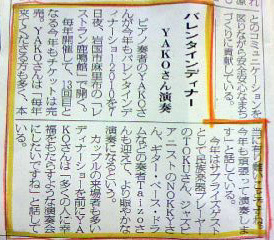 とのコミュニケーションを
図りながら支え合う心とまち
づくりに貢献している。
バレンタインディナー
YAKOさん演奏
ピアノ奏者のYAKOさ
んが今年もバレンタインディ
ナーショー2010を14
日夜、岩国市麻里布のレ
ストラン鹿鳴館で開く。
毎年開催して、13回目と
なる今年もチケットは完
売。YAKOさんは「毎年
来てくださる方も多く、本
当に有り難いことですね。
今年も頑張って演奏しま
す」と話している。
今年はサプライズゲスト
として尺八奏者
のTOKUさん、ジャズピ
アニストのNOKKYさ
ん、ギター・ベース・ドラ
ムなどの奏者
んも迎えて、より賑やかな
演奏になるという。
カップルの来場者も多い
ディナーショーを前にYA
KOさんは「多くの人に幸
福をもたらすような演奏会
にしたいですね」と話して
いる。